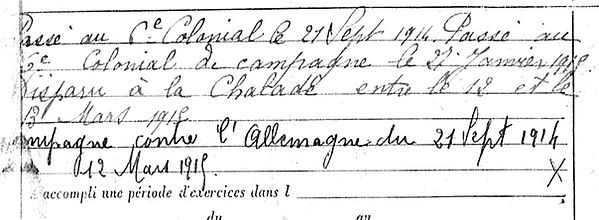 Passé au 6e Colonial le 21 Sept 1914. Passé au
5e Colonial de campagne le 27 Janvier 1915.
Disparu à la Chalade entre le 12 et le
13 Mars 1915
Campagne contre l'Allemagne du 21 Sept 1914
12 Mars 1915 X
accompli une période d'exercices dans l
du au